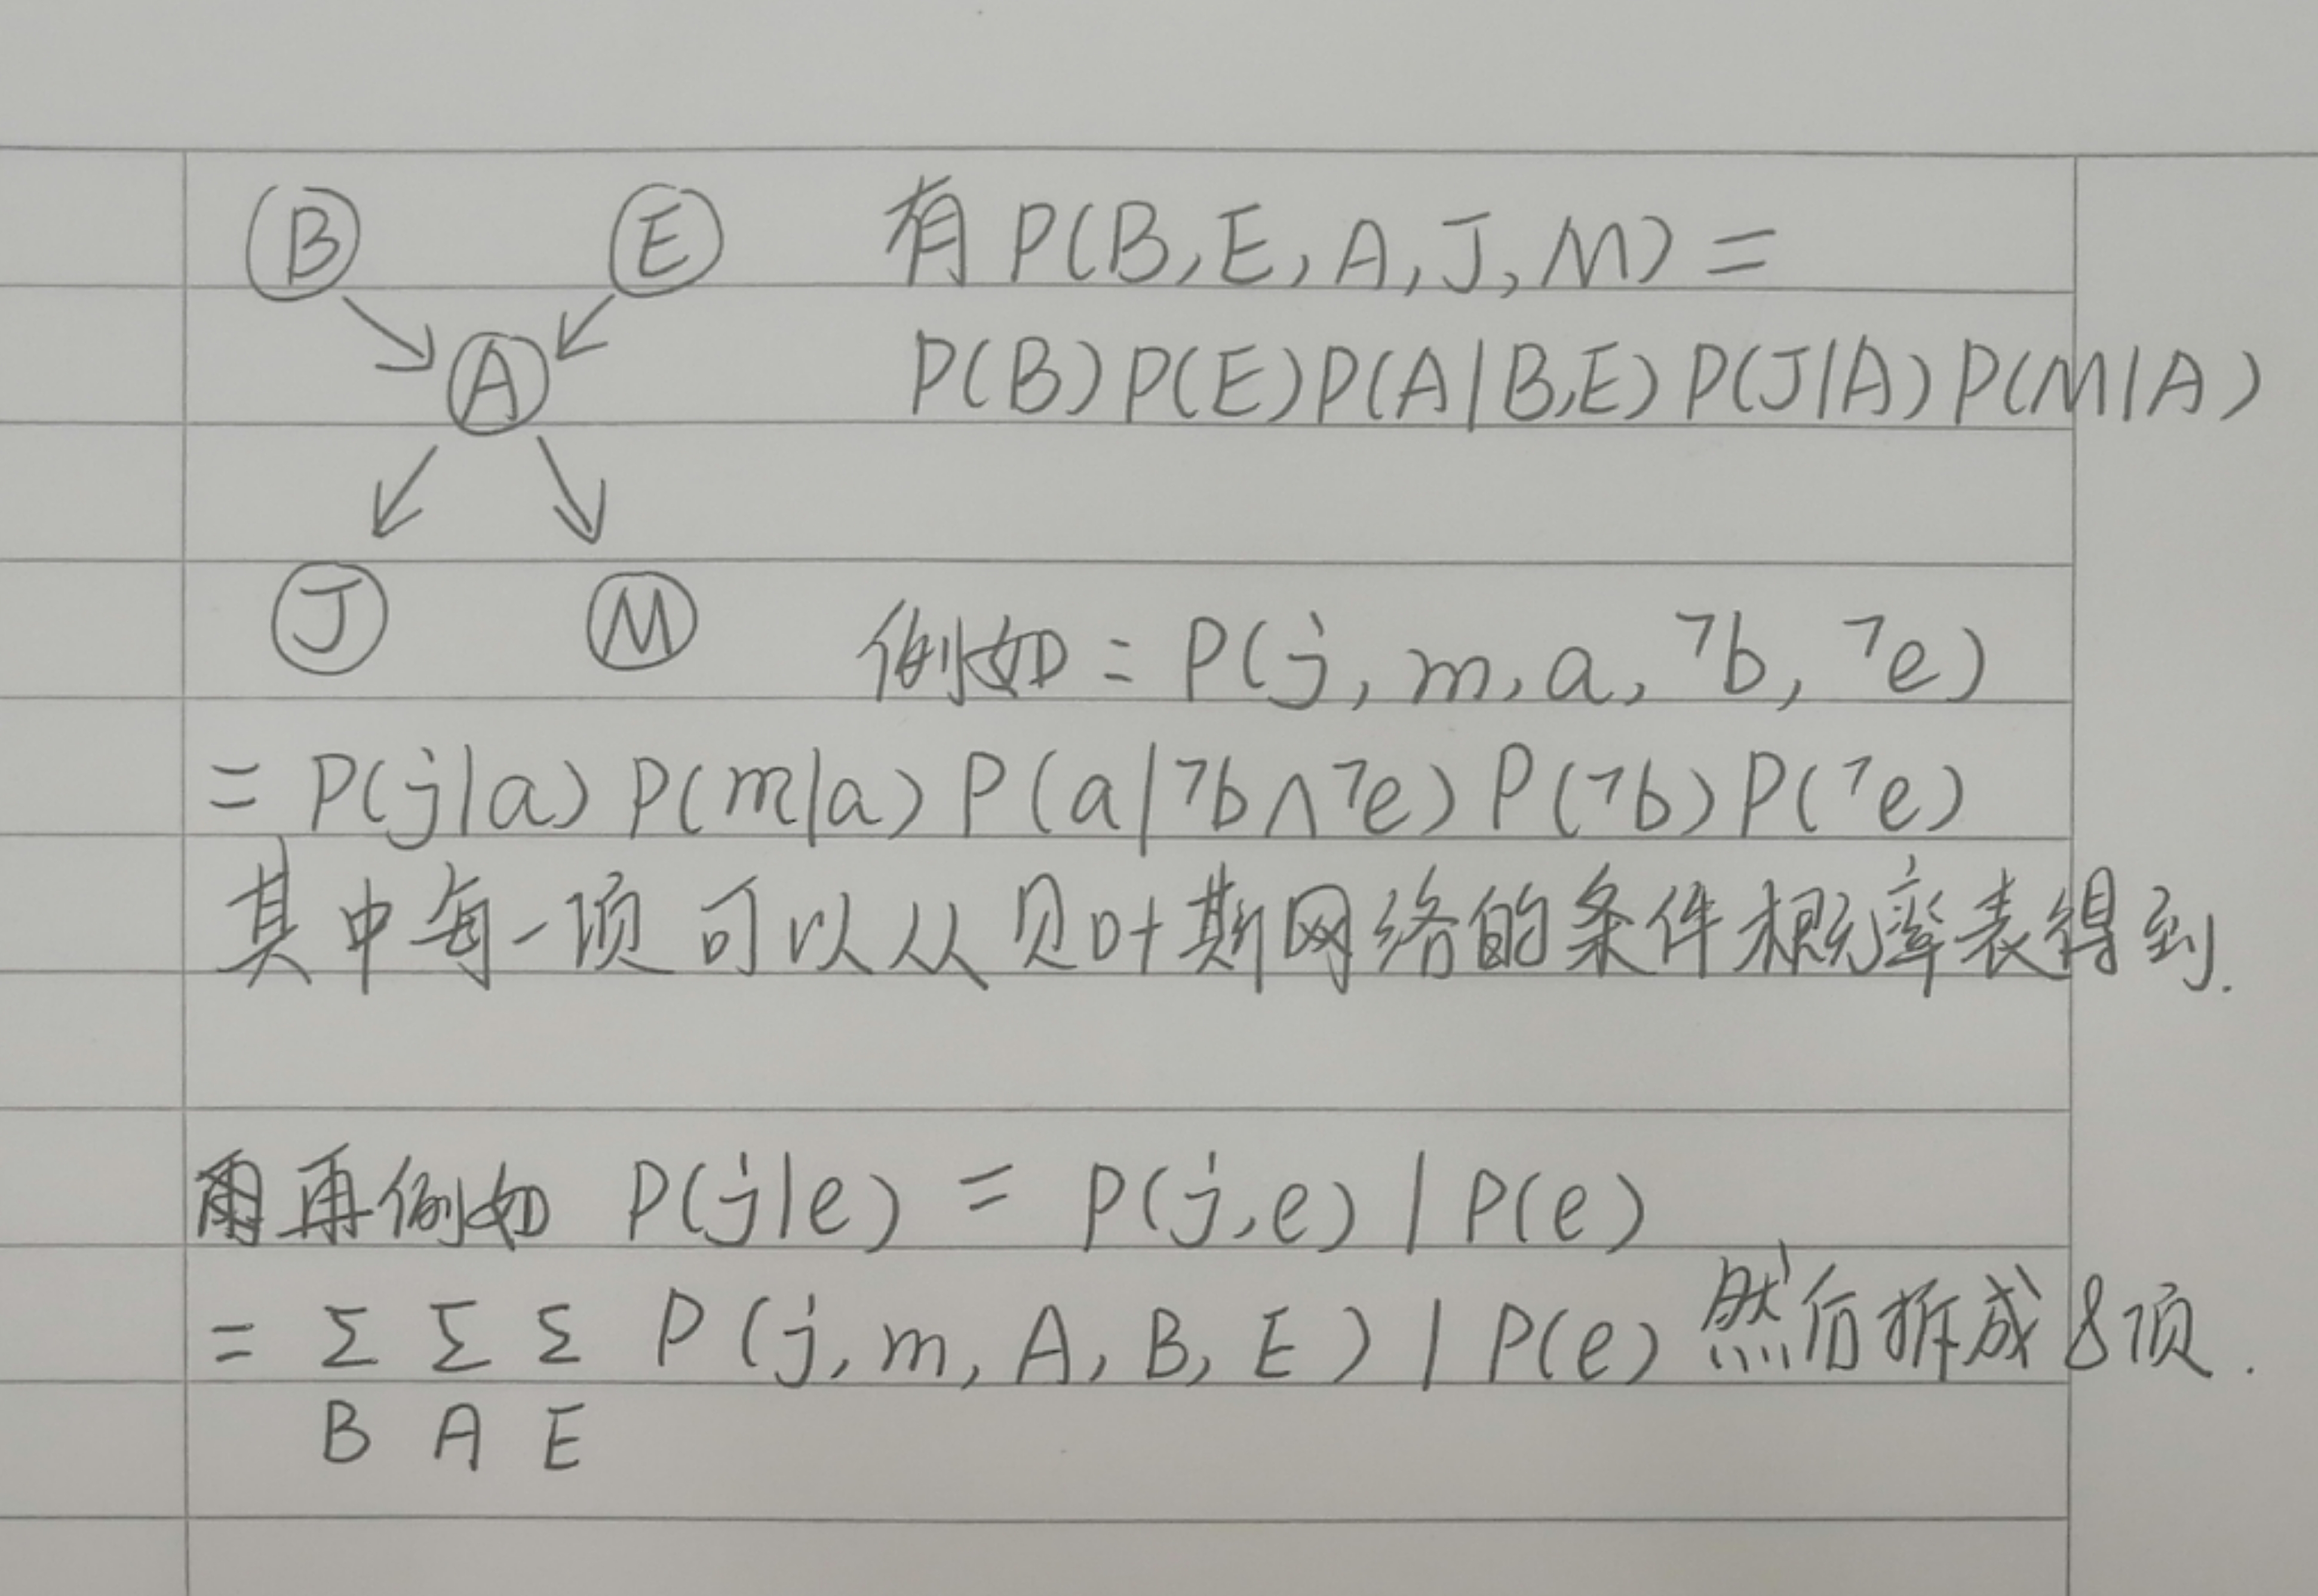 B E 有 P(B,E,A,J,M) =
A P(B)P(E)P(A|B,E)P(J|A)P(M|A)
J M 例如: P(j,m,a,¬b,¬e)
= P(j|a)P(m|a)P(a|¬b∧¬e)P(¬b)P(¬e)
其中每一项可以从贝叶斯网络的条件概率表得到.
再例如 P(j|e) = P(j,e) / P(e)
= Σ Σ Σ P(j,m,A,B,E) / P(e) 然后拆成8项.
B A E